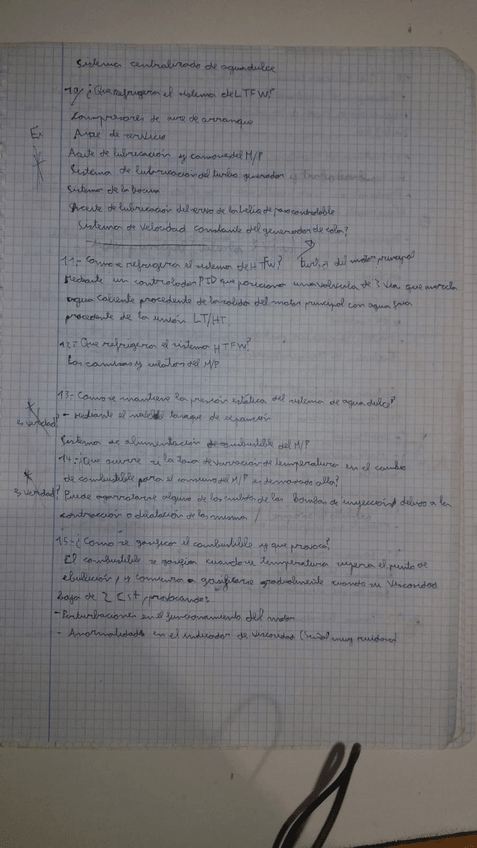 Sistema centralizado de agua dulce
10/ ¿Que refrigera el sistema de LTFW?
Compresores de aire de arranque
Aire de servicio
Ex
Aceite de lubricación y camisas del M/P
Sistema de lubricación del turbo generador
Sistema de la bocina
Aceite de lubricación del servo de la hélice de paso controlable
Sistema de velocidad constante del generador de cola?
del motor principal
11.- Como se refrigera el sistema de HTFW?
Mediante un controlador PID que posiciona una válvula de 3 vías que mezcla
agua caliente procedente de la salida del motor principal con agua fría
procedente de la unión LT/HT
12.- Que refrigera el sistema HTFW?
Las camisas y culatas del M/P
13.- Como se mantiene la presión estática del sistema de agua dulce?
es verdad?
- Mediante el tanque de expansión
Sistema de alimentación de combustible del M/P
14.- ¿Que ocurre si la tasa de variación de temperatura en el cambio
de combustible para el consumo del M/P es demasiado alta?
es verdad?
Puede agarrotarse alguno de los émbolos de las bombas de inyección debido a la
contracción o dilatación de las mismas
15.- ¿Como se gasifica el combustible y que provoca?
El combustible se gasifica cuando su temperatura supera el punto de
ebullición, y comienza a gasificarse gradualmente cuando su viscosidad
baja de 2 Cst, provocando:
- Perturbaciones en el funcionamiento del motor
- Anormalidades en el indicador de viscosidad (señal muy ruidosa)